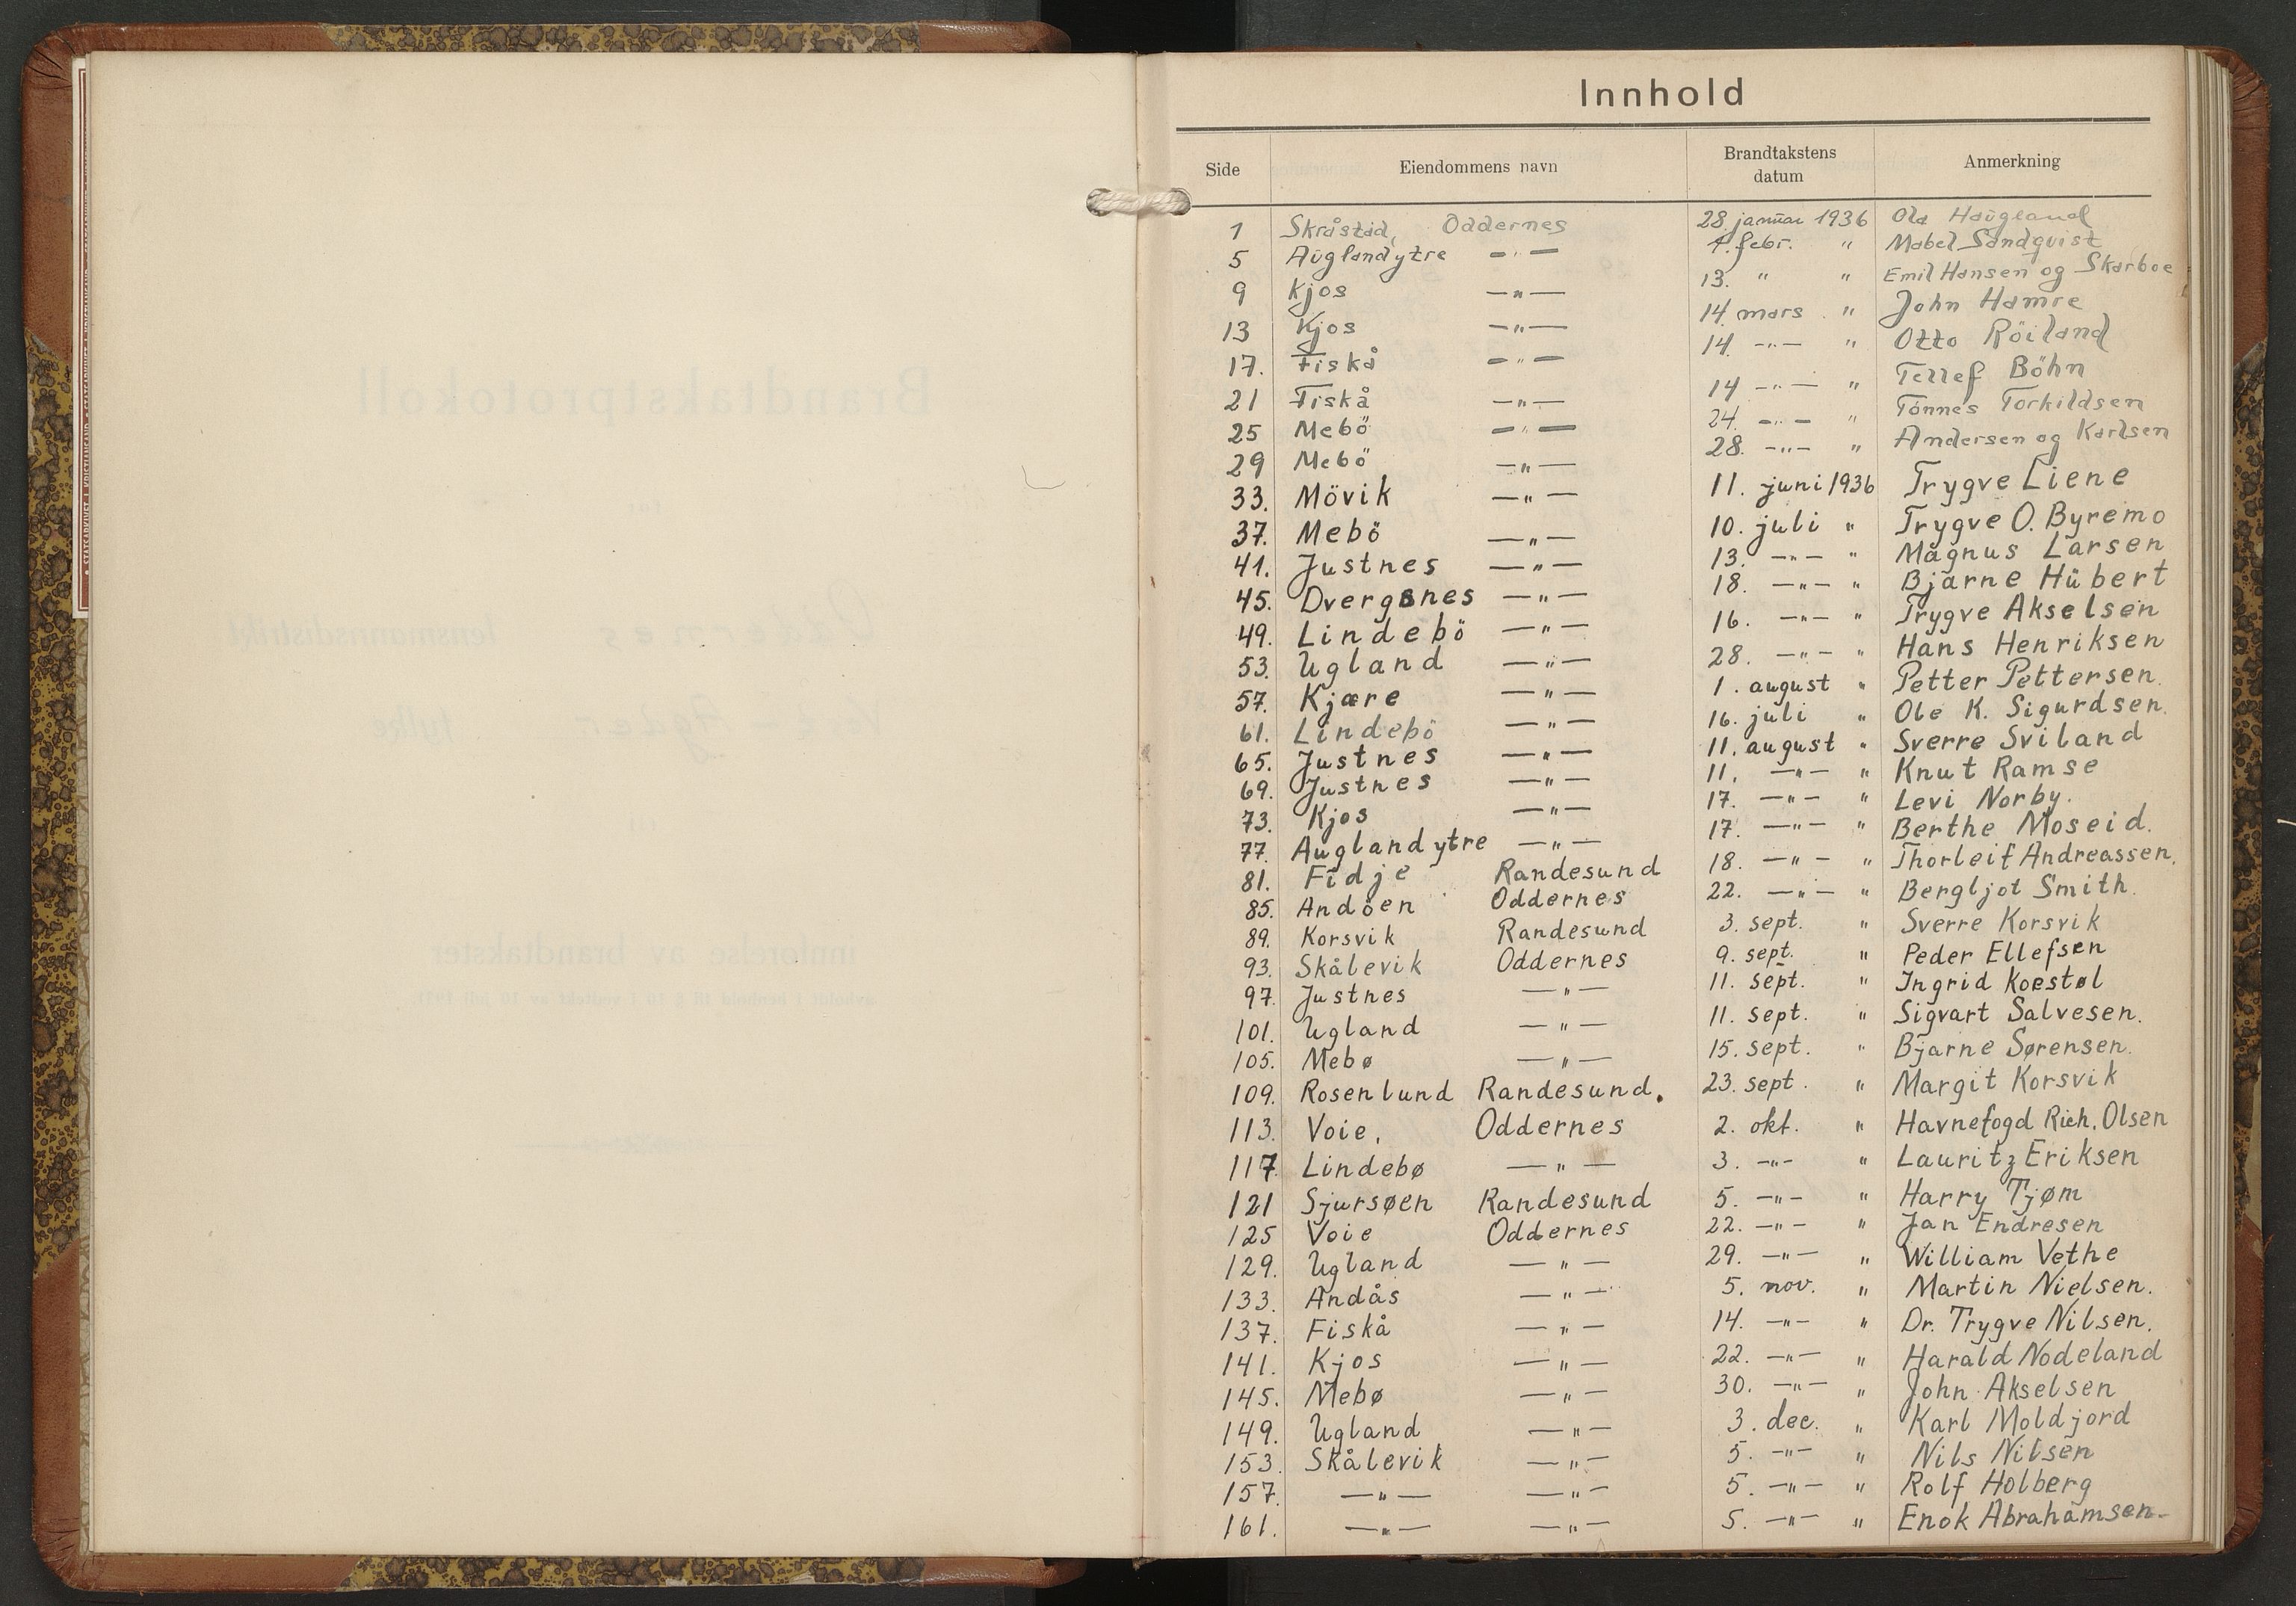 Innhold
Side Eiendommens navn Brandtakstens datum Anmerkning
1 Skråstad, Oddernes 28 januar 1936 Ola Haugland
5 Auglandytre —"— 4. febr. " Mabel Sandqvist
9 Kjos —"— 13. " " Emil Hansen og Skarboe
13 Kjos —"— 14 mars " John Hamre
17. Fiskå —"— 14. —"— " Otto Röiland
21 Fiskå —"— 14 —"— " Tellef Böhn
25 Mebö —"— 24. —"— " Tönnes Torkildsen
29 Mebö —"— 28. —"— " Andersen og Karlsen
33. Mövik —"— 11. juni 1936 Trygve Liene
37. Mebö —"— 10. juli " Trygve O. Byremo
41. Justnes —"— 13. —"— " Magnus Larsen
45. Dvergsnes —"— 18. —"— " Bjarne Hübert
49. Lindebö —"— 16. —"— " Trygve Akselsen
53. Ugland —"— 28. —"— " Hans Henriksen
57. Kjære —"— 1. august " Petter Pettersen.
61. Lindebö —"— 16. juli " Ole K. Sigurdsen.
65. Justnes —"— 11. august " Sverre Sviland
69. Justnes —"— 11. —"— " Knut Ramse
73. Kjos —"— 17. —"— " Levi Norby.
77. Auglandytre —"— 17. —"— " Berthe Moseid.
81. Fidje Randesund 18. —"— " Thorleif Andreassen.
85. Andöen Oddernes 22. —"— " Bergljot Smith.
89. Korsvik Randesund 3. sept. " Sverre Korsvik
93. Skålevik Oddernes 9. sept. " Peder Ellefsen
97. Justnes —"— 11. sept. " Ingrid Koestøl
101. Ugland —"— 11. sept. " Sigvart Salvesen.
105. Mebø —"— 15. sept. " Bjarne Sørensen.
109. Rosenlund Randesund. 23. sept. " Margit Korsvik
113. Voie, Oddernes 2. okt. " Havnefogd Rich. Olsen
117. Lindebø —"— 3. —"— " Lauritz Eriksen
121 Sjursøen Randesund 5. —"— " Harry Tjøm
125 Voie Oddernes 22. —"— " Jan Endresen
129. Ugland —"— 29. —"— " William Vethe
133. Andås —"— 5. nov. " Martin Nielsen.
137. Fiskå —"— 14. —"— " Dr. Trygve Nilsen.
141. Kjos —"— 22. —"— " Harald Nodeland
145. Mebø —"— 30. —"— " John Akselsen
149. Ugland —"— 3. dec. " Karl Moldjord
153. Skålevik —"— 5. —"— " Nils Nilsen
157. —"— —"— 5. —"— " Rolf Holberg
161. —"— —"— 5. —"— " Enok Abrahamsen.